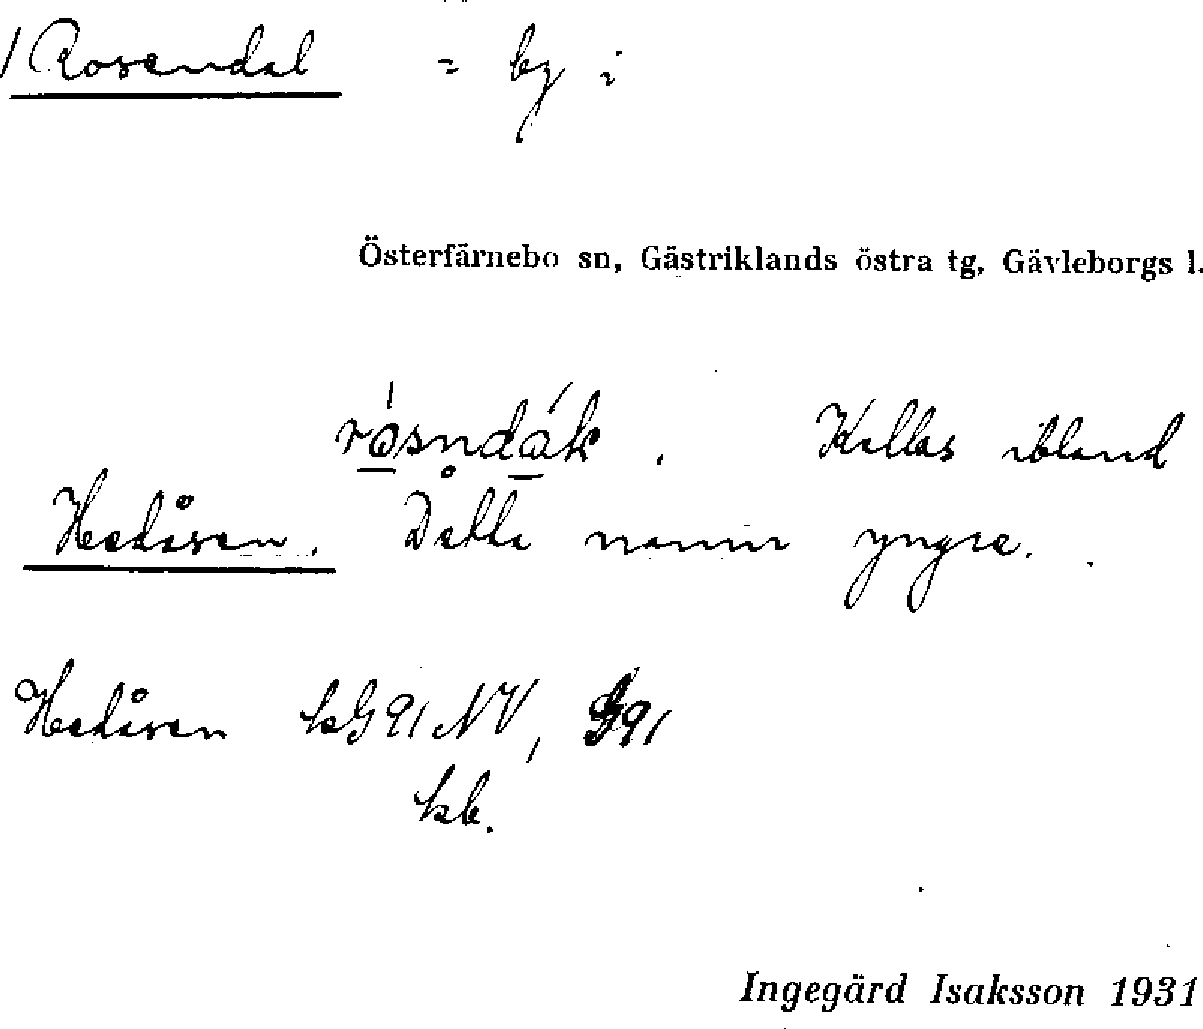 Rosendal = by i
Österfärnebo sn, Gästriklands östra tg, Gävleborgs l.
Kallas ibland
Hedåsen. Detta namn yngre.
Hedåsen kG91NV, G91
kb.
Ingegärd Isaksson 1931